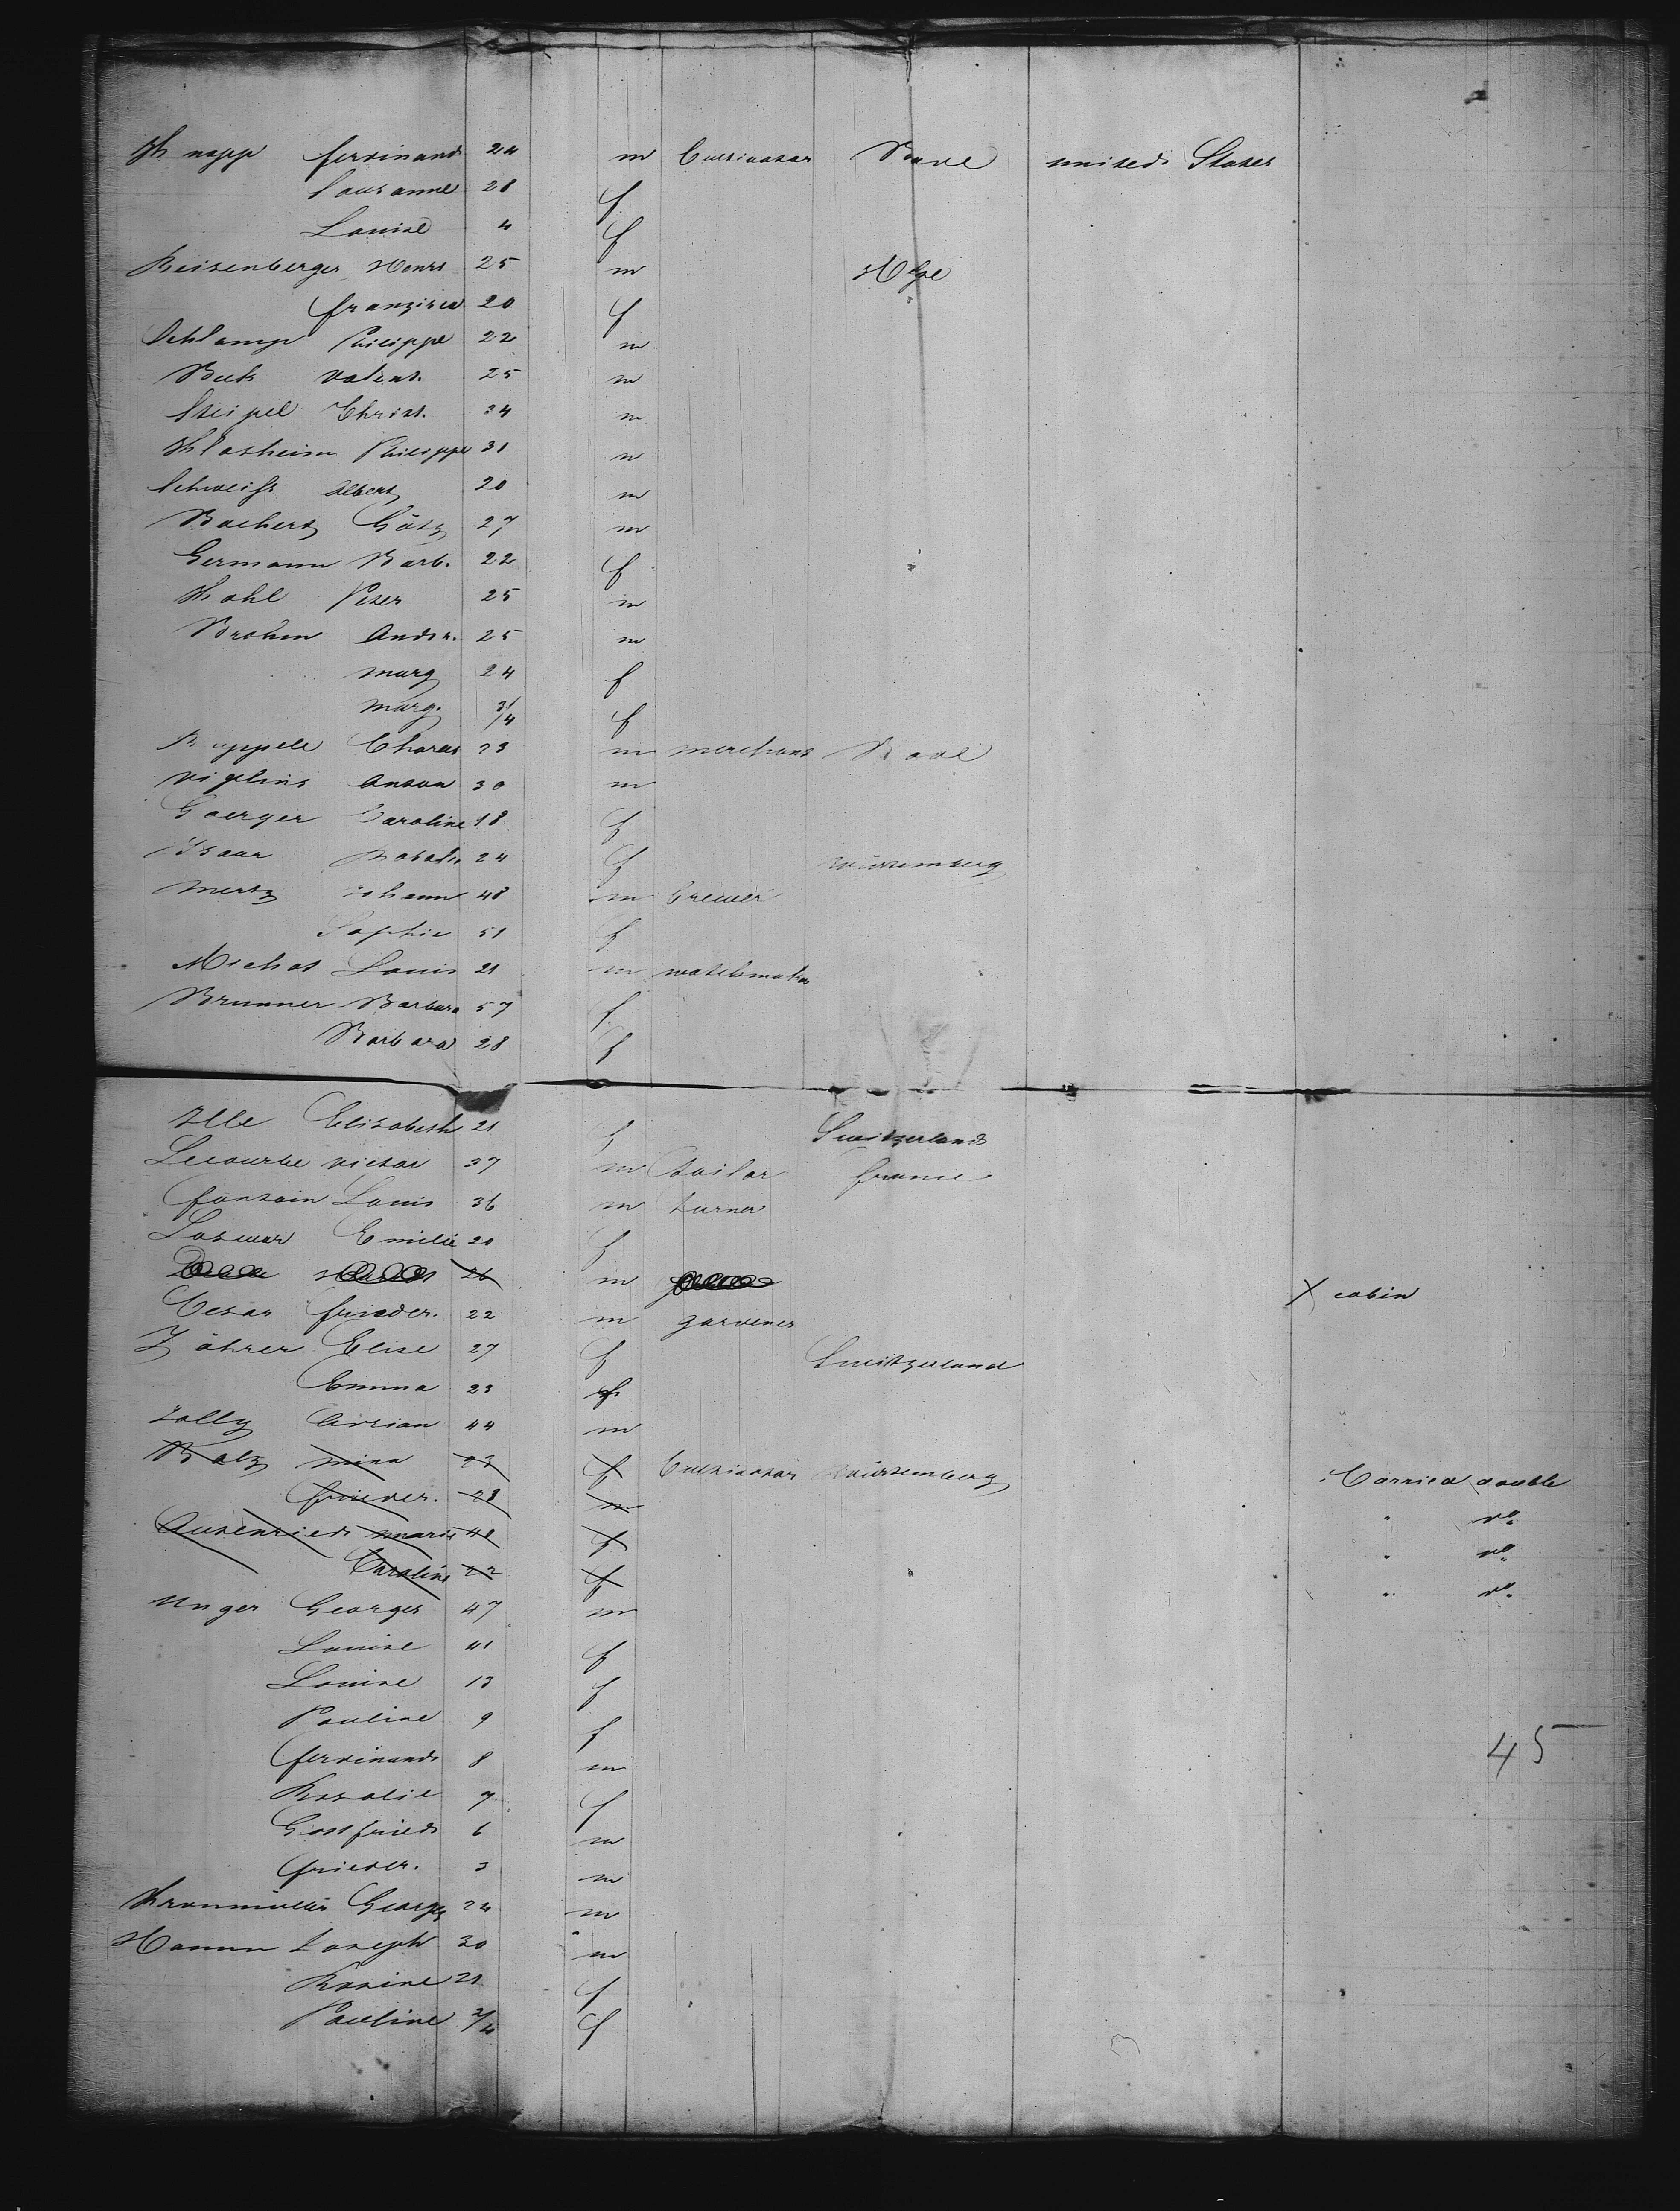 Knapp ferdinand 24 m Cultivator Bade united States
Sousanne 28 f
Louise 4 f
Reisenberger Henri 25 m Hesse
franzisca 20 f
Schlamp Philippe 22 m
Beck valent. 25 m
Steipel Christ. 34 m
Klasheim Philippe 31 m
Schweiss Albert 20 m
Bachert Götz 27 m
Germann Barb. 22 f
Kohl Peter 25 m
Brohm Andr. 25 m
marg 24 f
marg. 3/4 f
Ruppele Charles 23 m merchant Bade
Anton 30 m
Goerger Caroline 18 f
Rosalie 24 f Würtemberg
Mertz Johann 48 m brewer
Sophie 51 f
Michot Louis 21 m watchmaker
Brunner Barbara 57 f
Barbara 28 f
Elisabeth 21 f Switzerland
Lecourbe victor 37 m tailor france
fontain Louis 36 m turner
Emilie 20 f
26 m X cabin
Cesar frieder. 22 m gardener
Zährer Elise 27 f Switzerland
Emma 23 f
Jolly Adrian 44 m
Balz mina 23 f Cultivator Würtemberg Carried double
frieder. 28 m " do.
Autenried marie 48 f " do.
Caroline 22 f " do.
Unger Georges 47 m
Louise 41 f
Louise 13 f
Pauline 9 f
ferdinand 8 m
45
Rosalie 7 f
Gottfried 6 m
frieder. 3 m
Kronmüller George 24 m
Hamm Joseph 30 m
Rosine 21 f
Pauline 3/4 f